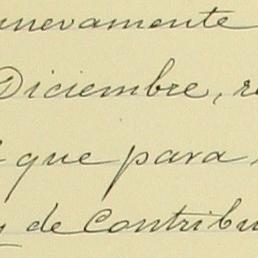 nuevamente
Diciembre, re
que para
de Contribu